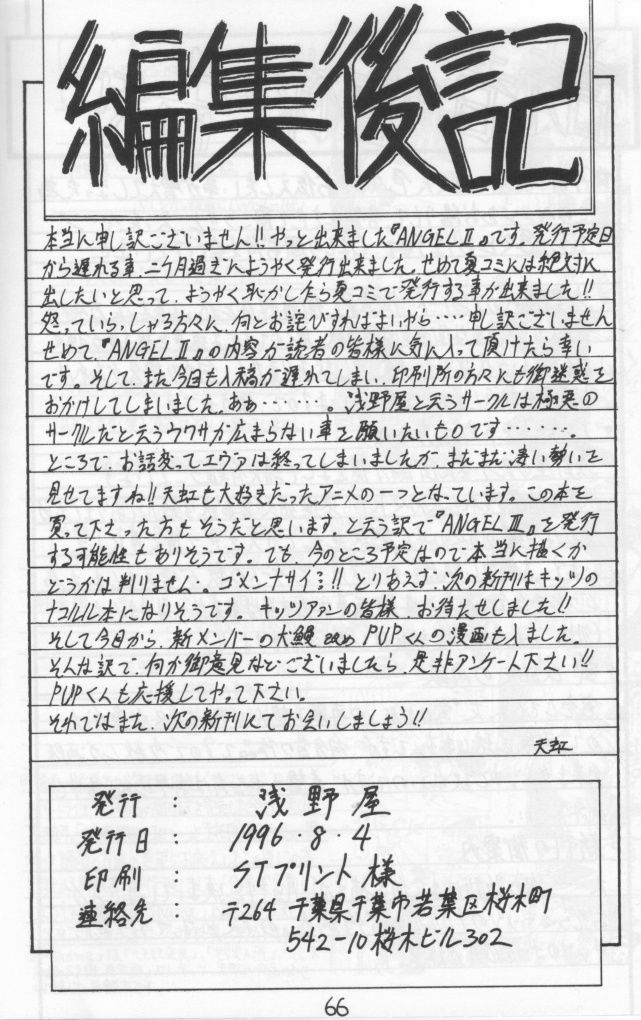 編集後記
本当に申し訳ございません!!やっと出来ました『ANGELⅡ』です。発行予定日
から遅れる事、二ヶ月過ぎにようやく発行出来ました。せめて夏コミには絶対に
出したいと思って、ようやく恥かしながら夏コミで発行する事が出来ました!!
怒っていらっしゃる方々に、何とお詫びすればよいやら……申し訳ございません
せめて、『ANGELⅡ』の内容が読者の皆様に気に入って頂けたら幸い
です。そして、また今回も入稿が遅れてしまい、印刷所の方々にも御迷惑を
おかけしてしまいました。ああ………。浅野屋と云うサークルは極悪の
サークルだと云うウワサが広まらない事を願いたいものです………。
ところで、お話変ってエヴァは終ってしまいましたが、まだまだ凄い勢いを
見せてますね!!天虹も大好きだったアニメの一つとなっています。この本を
買って下さった方もそうだと思います。と云う訳で『ANGELⅢ』を発行
する可能性もありそうです。でも、今のところ予定なので本当に描くか
どうかは判りません。ゴメンナサイ!!とりあえず、次の新刊はキッツの
ナコルル本になりそうです。キッツファンの皆様、お待たせしました!!
そして今回から、新メンバーの犬鰻改めPUPくんの漫画も入ました。
そんな訳で、何か御意見などございましたら、是非アンケート下さい!!
PUPくんも応援してやって下さい。
それではまた、次の新刊にてお会いしましょう!!
天虹
発行 : 浅野屋
発行日 : 1996・8・4
印刷 : STプリント様
連絡先 : 〒264 千葉県千葉市若葉区桜木町
542-10桜木ビル302
66